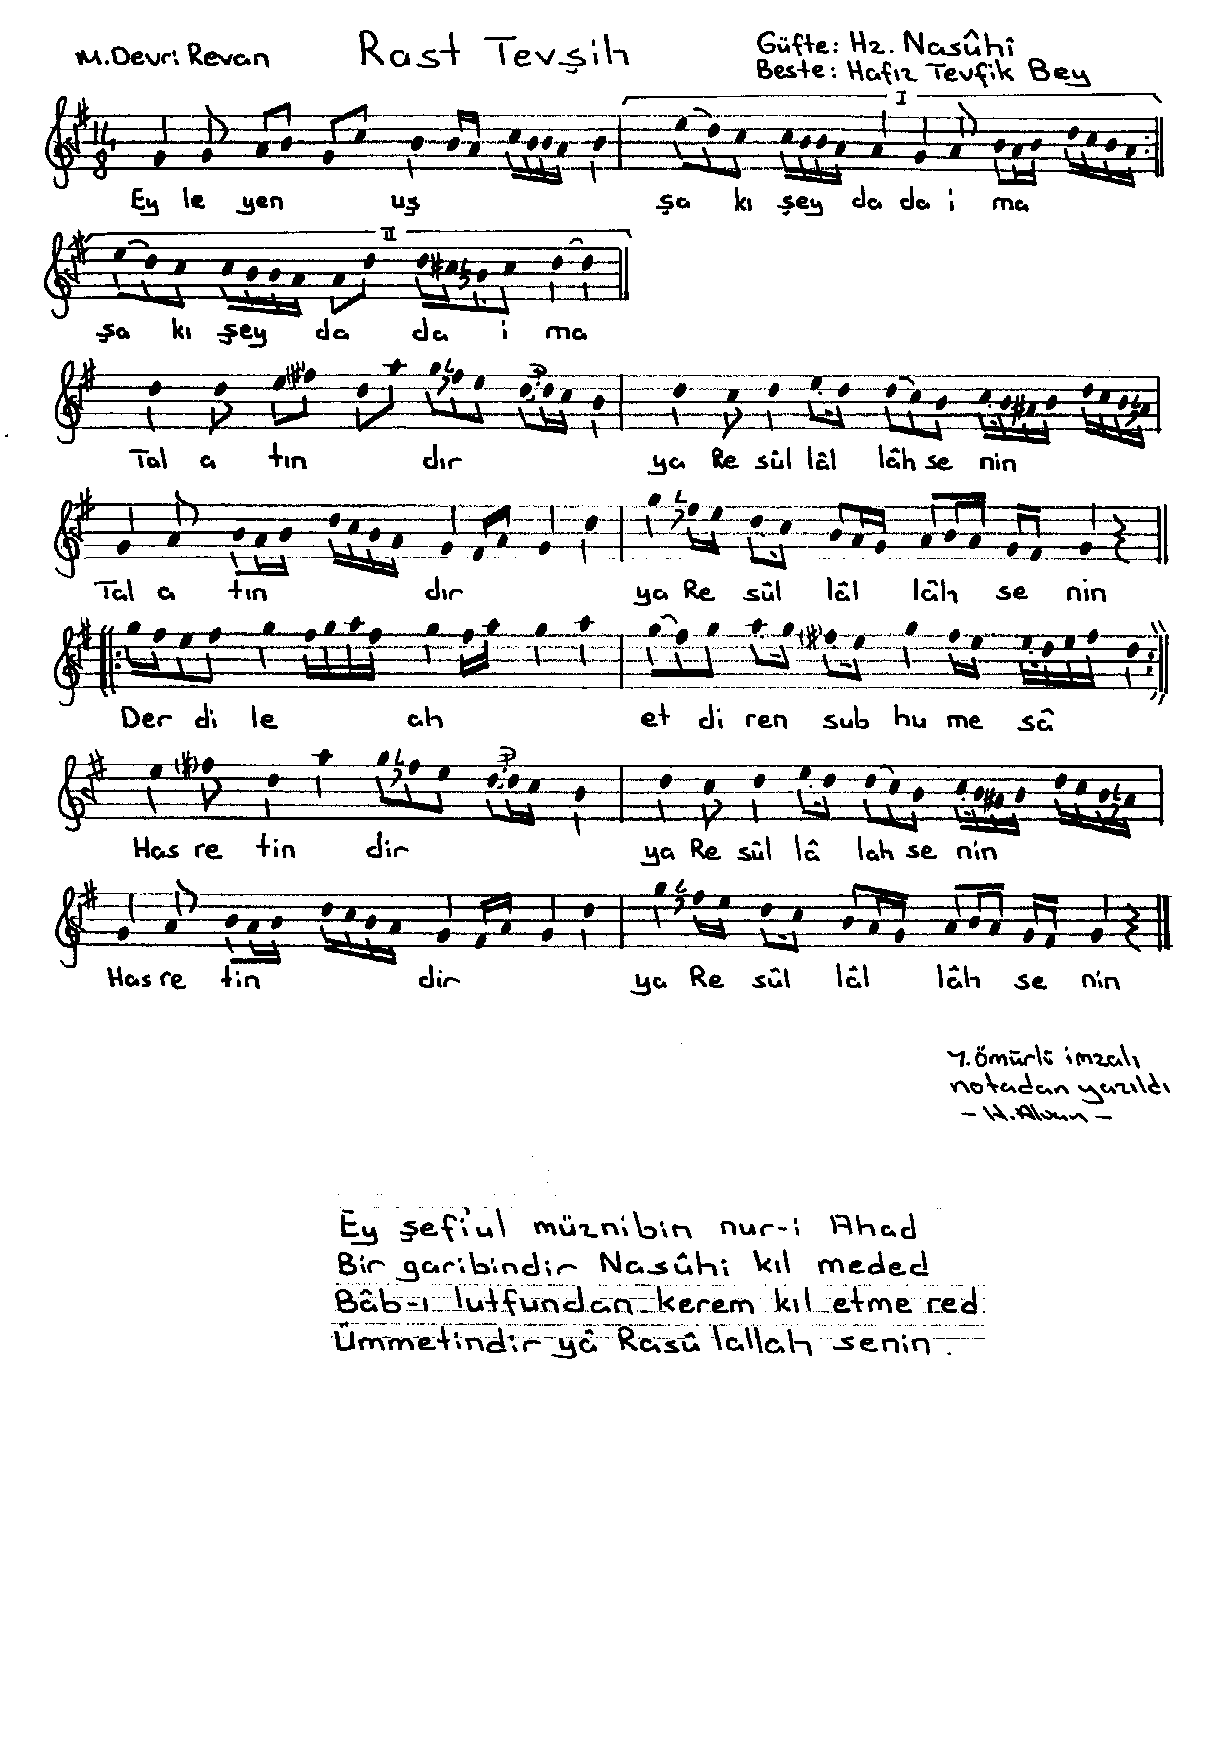 M.Devri Revan
Rast Tevşih
Güfte: Hz. Nasûhî
Beste: Hafız Tevfik Bey
I
14
8
Ey le yen uş şa kı şey da da i ma
II
şa kı şey da da i ma
Tal a tın dır ya Re sûl lâl lâh se nin
Tal a tın dır ya Re sûl lâl lâh se nin
Der di le ah et di ren sub hu me sâ
Has re tin dir ya Re sûl lâ lah se nin
Has re tin dir ya Re sûl lâl lâh se nin
Y. Ömürlü imzalı
notadan yazıldı
Ey şefi'ul müznibin nur-i Ahad
Bir garibindir Nasûhi kıl meded
Bâb-ı lutfundan kerem kıl etme red
Ümmetindir yâ Rasû lallah senin.